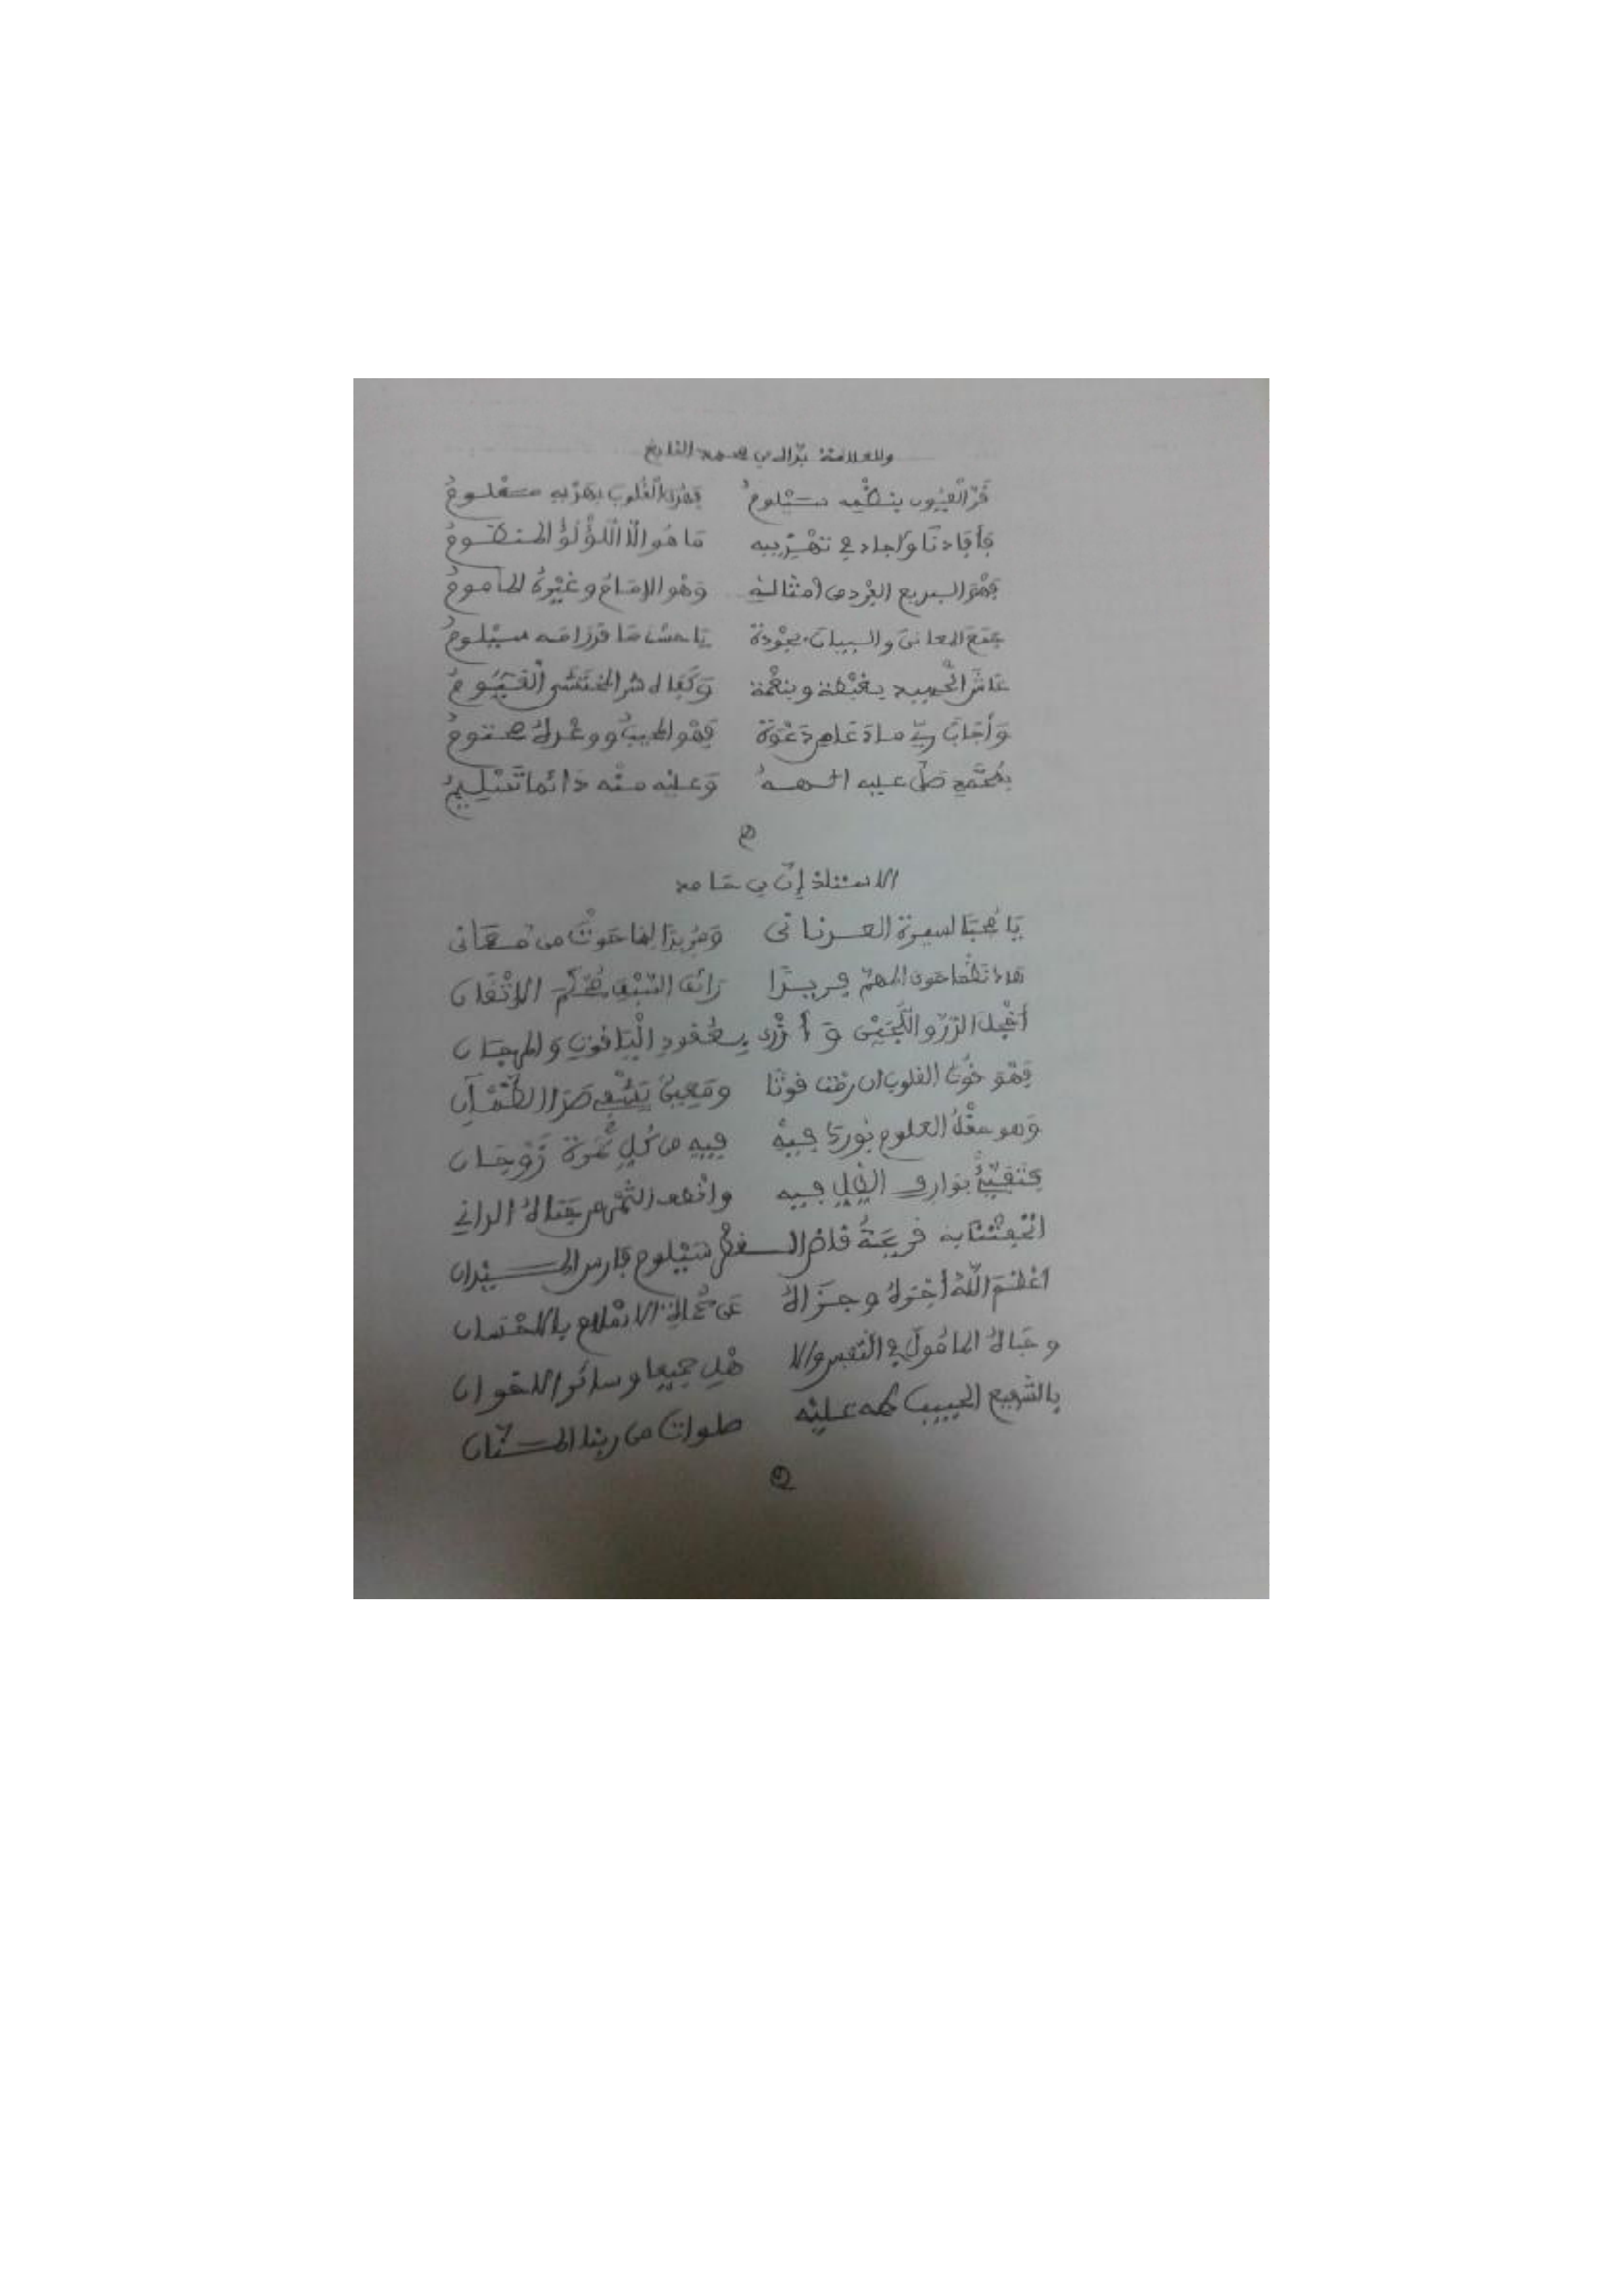 وللعلامة بدّال بن محمد النابغ
قَرَّ الْعُيُون بِنَظْمِه سَيْلومُ فَهْزَا الْقُلوب بِهَزّبِهِ مسقلومُ
فَأَفَادنَا وَأجاد في تهْزِيبه مَا هُو الَّا اللُّؤْلُؤُ المنظومُ
فَهْوَ البديع الفرْد من أمثاله وَهْو الإمَامُ وغَيْرهُ المأمومُ
جَمَعَ المعانيَ والبيان بجودة يا حسْن مَا قَد رَامَه سَيْلومُ
عَاشَ الْحبيب بغبْطَة وبنعْمة وَكفاه شر المختشى الْقَيُّومُ
وَأجَابَ ربّي مادَعَاهُ دَعْوَة فهْو المجيب ووعْدهُ محتومُ
بمُحَمَّدٍ صَلّى عليه الهه وَعَليْه منْه دَائما تَسْلِيمُ
الاستاذ إنّ بن حَامد
يَا مُحِبّا لسيرة العدنانى وَمُرِيدًا لِمَا حَوتْ من مَعَانى
هَاك نظْما حوى المهمّ فريدًا رَائق السَّبْك مُحْكَم الإتْقَان
أخْجَلَ الدّرّ واللّجَيْن وَأزْرى بِعُقودِ الْيَاقُوتِ وَالمرجَان
فهْوَ قُوت القلوب ان رمْت قوتَا ومَعِينٌ يَشْفِى صَدَا الظَّمْآن
وَهو حقْلُ العلوم بُورك فِيهْ فيهِ من كُلِّ ثمرة زَوْجَان
فَتَفَيَّأْ بوارف الظّل فيه واقْطف الثَّمْر من جَنَاهُ الدانِي
اتْحفتْنَا به قريحَةُ قاضي السفر سَيْلوم فارس الميْدان
أعْظمَ اللَّهُ أجْرهُ وجَزَاهُ عَن محمد الاسْلام بالاحْسَان
وحَبَاهُ المامُولَ في النفس والا هْل جميعا وسائر الاخوان
بالشفيع الحبيب طه عليْه صلوات من ربنا المَنَّان